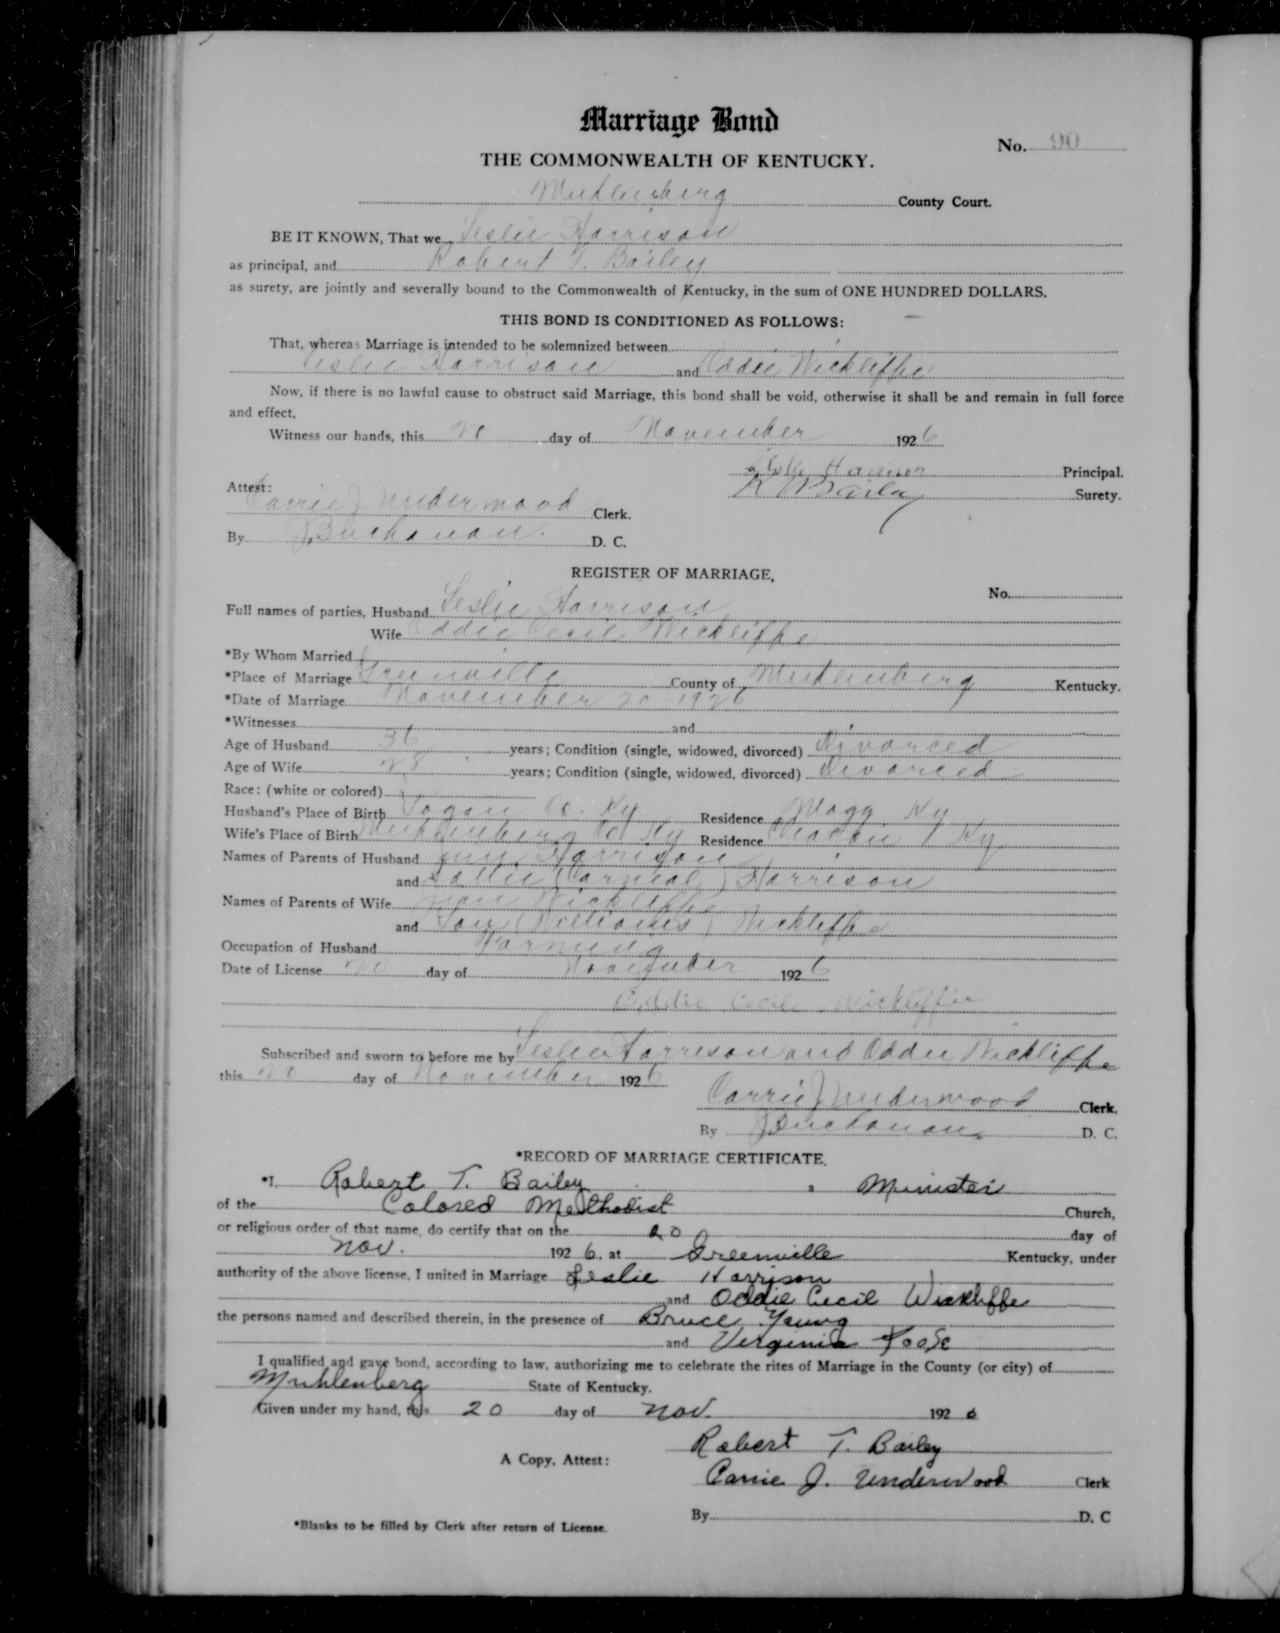 Marriage Bond
No. 90
THE COMMONWEALTH OF KENTUCKY.
Muhlenberg County Court.
BE IT KNOWN, That we Leslie Harrison
as principal, and Robert T. Bailey
as surety, are jointly and severally bound to the Commonwealth of Kentucky, in the sum of ONE HUNDRED DOLLARS.
THIS BOND IS CONDITIONED AS FOLLOWS:
That, whereas Marriage is intended to be solemnized between
Leslie Harrison and Oddie Wickliffe
Now, if there is no lawful cause to obstruct said Marriage, this bond shall be void, otherwise it shall be and remain in full force
and effect,
Witness our hands, this 20 day of November 1926
Leslie Harrison Principal.
Attest: R T Bailey Surety.
Carrie J Underwood Clerk.
By J. Buchanan. D. C.
REGISTER OF MARRIAGE,
No.
Full names of parties, Husband Leslie Harrison
Wife Oddie Cecil Wickliffe
*By Whom Married
*Place of Marriage Greenville County of Muhlenberg Kentucky.
*Date of Marriage November 20 1926
*Witnesses and
Age of Husband 36 years; Condition (single, widowed, divorced) Divorced
Age of Wife 28 years; Condition (single, widowed, divorced) Divorced
Race: (white or colored)
Husband's Place of Birth Logan Co. Ky Residence Mogg Ky
Wife's Place of Birth Muhlenberg Co Ky Residence Ky
Names of Parents of Husband Harrison
and Sallie (Carneal) Harrison
Names of Parents of Wife Wickliffe
and (Williams) Wickliffe
Occupation of Husband Farming
Date of License 20 day of November 1926
Oddie Cecil Wickliffe
Subscribed and sworn to before me by Leslie Harrison and Oddie Wickliffe
this 20 day of November 1926
Carrie J Underwood Clerk.
By J Buchanan D. C.
*RECORD OF MARRIAGE CERTIFICATE.
*I, Robert T. Bailey a Minister
of the Colored Methodist Church,
or religious order of that name, do certify that on the 20 day of
Nov. 1926, at Greenville Kentucky, under
authority of the above license, I united in Marriage Leslie Harrison
and Oddie Cecil Wickliffe
the persons named and described therein, in the presence of Bruce Young
and Virginia
I qualified and gave bond, according to law, authorizing me to celebrate the rites of Marriage in the County (or city) of
Muhlenberg State of Kentucky.
Given under my hand, this 20 day of Nov. 1926
Robert T. Bailey
A Copy, Attest:
Carrie J. Underwood Clerk
By D. C
*Blanks to be filled by Clerk after return of License.